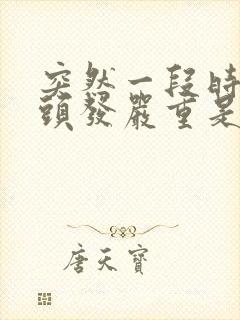 突然一段時
頭發嚴重是
唐天寶